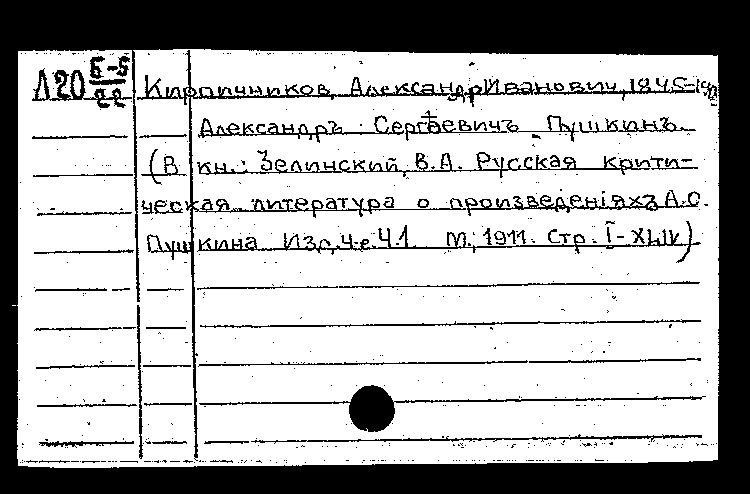 Л20 Б-5/22 Кирпичников, Александр Иванович, 1845-19
Александръ Сергѣевичъ Пушкинъ.
(В кн.: Зелинский, В.А. Русская крити-
ческая литература о произведеніяхъ А.С.
Пушкина. Изд. 4-е. Ч.1. М., 1911. Стр. I-XLIV)